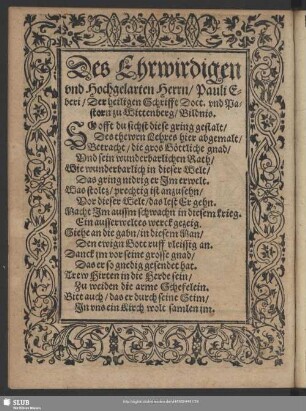 Des Ehrwirdigen
vnd Hochgelarten Herrn/ Pauli E-
beri/ Der heiligen Schrifft Doct. vnd Pa-
storn zu Wittenberg/ Bildnis.
SO offt du sichst diese gring gestalt/
Des thewren Lehrers hier abgemalt/
Betracht/ die gros Göttliche gnad/
Vnd sein wunderbarlichen Rath/
Wie wunderbarlich in dieser Welt/
Das gring nidrig er Im erwelt.
Was stoltz/ prechtig ist anzusehn/
Vor dieser Welt/ das lest Er gehn.
Macht Im aussm schwachn in diesem krieg.
Ein ausserweltes werckgezeig.
Siehe an die gabn/ in diesem Man/
Den ewign Gott ruff vleissig an.
Danck jm vor seine grosse gnad/
Das er so gnedig gesendet hat.
Trew Hirten in die Herde sein/
Zu weiden die arme Schefelein.
Bitt auch/ das er durch seine Stim/
In vns ein Kirch wolt samlen jm.
SLUB